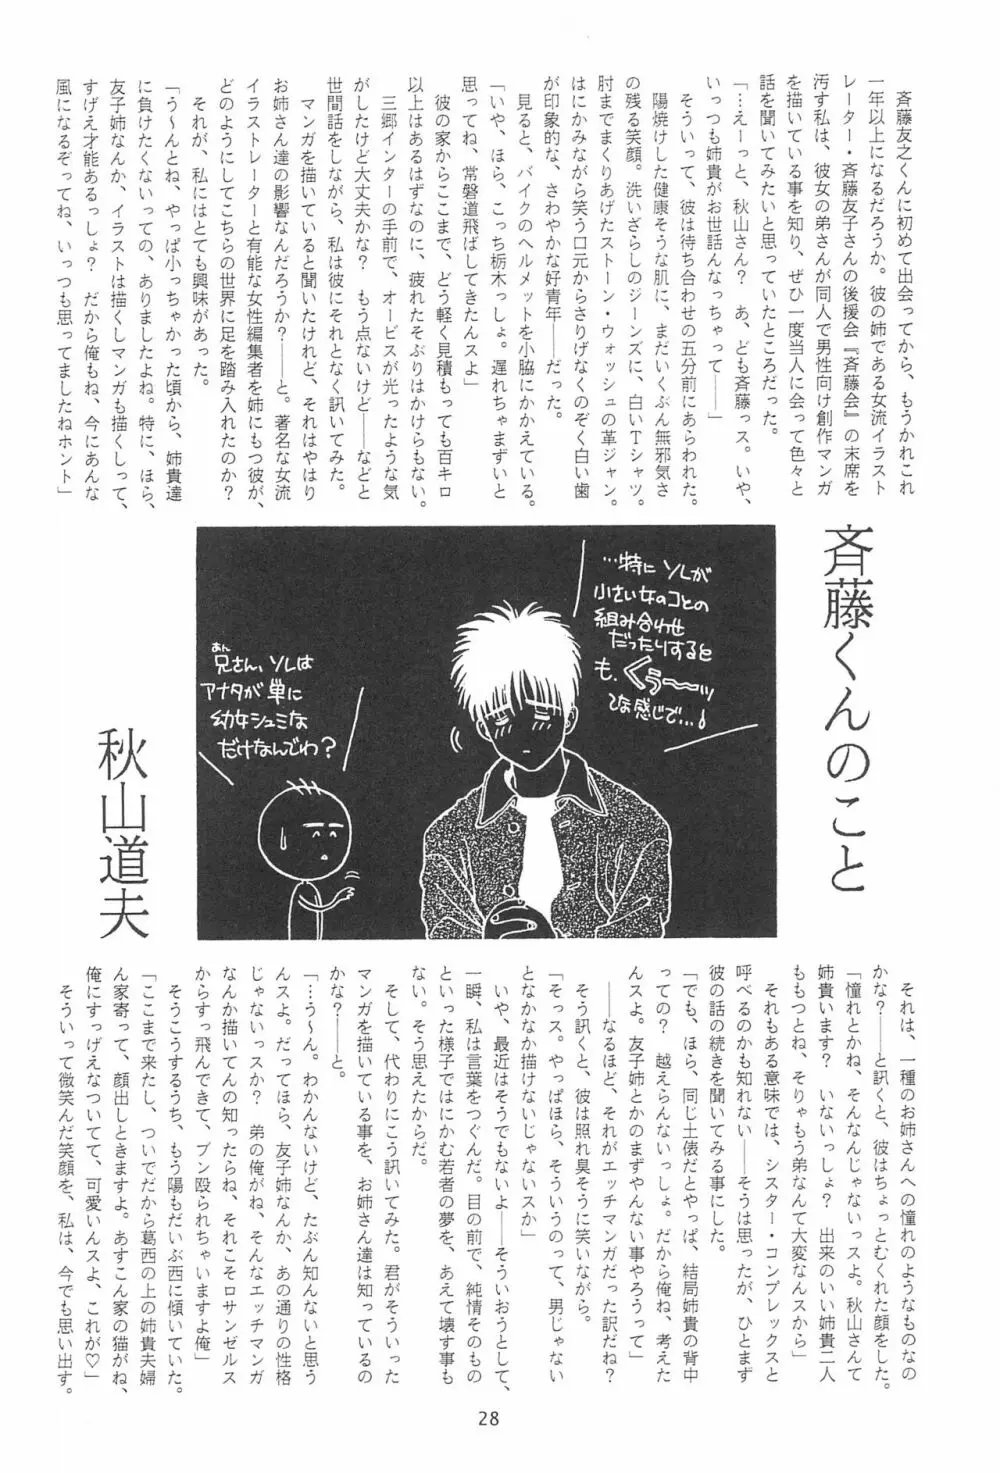 斉藤くんのこと
秋山道夫
　斉藤友之くんに初めて出会ってから、もうかれこれ
一年以上になるだろうか。彼の姉である女流イラスト
レーター・斉藤友子さんの後援会『斉藤会』の末席を
汚す私は、彼女の弟さんが同人で男性向け創作マンガ
を描いている事を知り、ぜひ一度当人に会って色々と
話を聞いてみたいと思っていたところだった。
「…えーっと、秋山さん？　あ、ども斉藤っス。いや、
いっつも姉貴がお世話んなっちゃって――」
　そういって、彼は待ち合わせの五分前にあらわれた。
　陽焼けした健康そうな肌に、まだいくぶん無邪気さ
の残る笑顔。洗いざらしのジーンズに、白いTシャツ。
肘までまくりあげたストーン・ウォッシュの革ジャン。
はにかみながら笑う口元からさりげなくのぞく白い歯
が印象的な、さわやかな好青年――だった。
　見ると、バイクのヘルメットを小脇にかかえている。
「いや、ほら、こっち栃木っしょ。遅れちゃまずいと
思ってね、常磐道飛ばしてきたんスよ」
　彼の家からここまで、どう軽く見積もっても百キロ
以上はあるはずなのに、疲れたそぶりはかけらもない。
　三郷インターの手前で、オービスが光ったような気
がしたけど大丈夫かな？　もう点ないけど――などと
世間話をしながら、私は彼にそれとなく訊いてみた。
　マンガを描いていると聞いたけれど、それはやはり
お姉さん達の影響なんだろうか？――と。著名な女流
イラストレーターと有能な女性編集者を姉にもつ彼が、
どのようにしてこちらの世界に足を踏み入れたのか？
　それが、私にはとても興味があった。
「う〜んとね、やっぱ小っちゃかった頃から、姉貴達
に負けたくないっての、ありましたよね。特に、ほら、
友子姉なんか、イラストは描くしマンガも描くしって、
すげえ才能あるっしょ？　だから俺もね、今にあんな
風になるぞってね、いっつも思ってましたねホント」
…特にソレが
小さい女のコとの
組み合わせ
だったりすると
も、くぅ〜〜ッ
てな感じで…！
兄さん、ソレは
あん
アナタが単に
幼女シュミな
だけなんでわ？
　それは、一種のお姉さんへの憧れのようなものなの
かな？――と訊くと、彼はちょっとむくれた顔をした。
「憧れとかね、そんなんじゃないっスよ。秋山さんて
姉貴います？　いないっしょ？　出来のいい姉貴二人
ももつとね、そりゃもう弟なんて大変なんスから」
　それもある意味では、シスター・コンプレックスと
呼べるのかも知れない――そうは思ったが、ひとまず
彼の話の続きを聞いてみる事にした。
「でも、ほら、同じ土俵だとやっぱ、結局姉貴の背中
っての？　越えらんないっしょ。だから俺ね、考えた
んスよ。友子姉とかのまずやんない事やろうって」
　――なるほど、それがエッチマンガだった訳だね？
　そう訊くと、彼は照れ臭そうに笑いながら。
「そっス。やっぱほら、そういうのって、男じゃない
となかなか描けないじゃないスか」
　いや、最近はそうでもないよ――そういおうとして、
一瞬、私は言葉をつぐんだ。目の前で、純情そのもの
といった様子ではにかむ若者の夢を、あえて壊す事も
ない。そう思えたからだ。
　そして、代わりにこう訊いてみた。君がそういった
マンガを描いている事を、お姉さん達は知っているの
かな？――と。
「…う〜ん。わかんないけど、たぶん知んないと思う
んスよ。だってほら、友子姉なんか、あの通りの性格
じゃないっスか？　弟の俺がね、そんなエッチマンガ
なんか描いてんの知ったらね、それこそロサンゼルス
からすっ飛んできて、ブン殴られちゃいますよ俺」
　そうこうするうち、もう陽もだいぶ西に傾いていた。
「ここまで来たし、ついでだから葛西の上の姉貴夫婦
ん家寄って、顔出しときますよ。あすこん家の猫がね、
俺にすっげえなついてて、可愛いんスよ、これが♡」
　そういって微笑んだ笑顔を、私は、今でも思い出す。
28